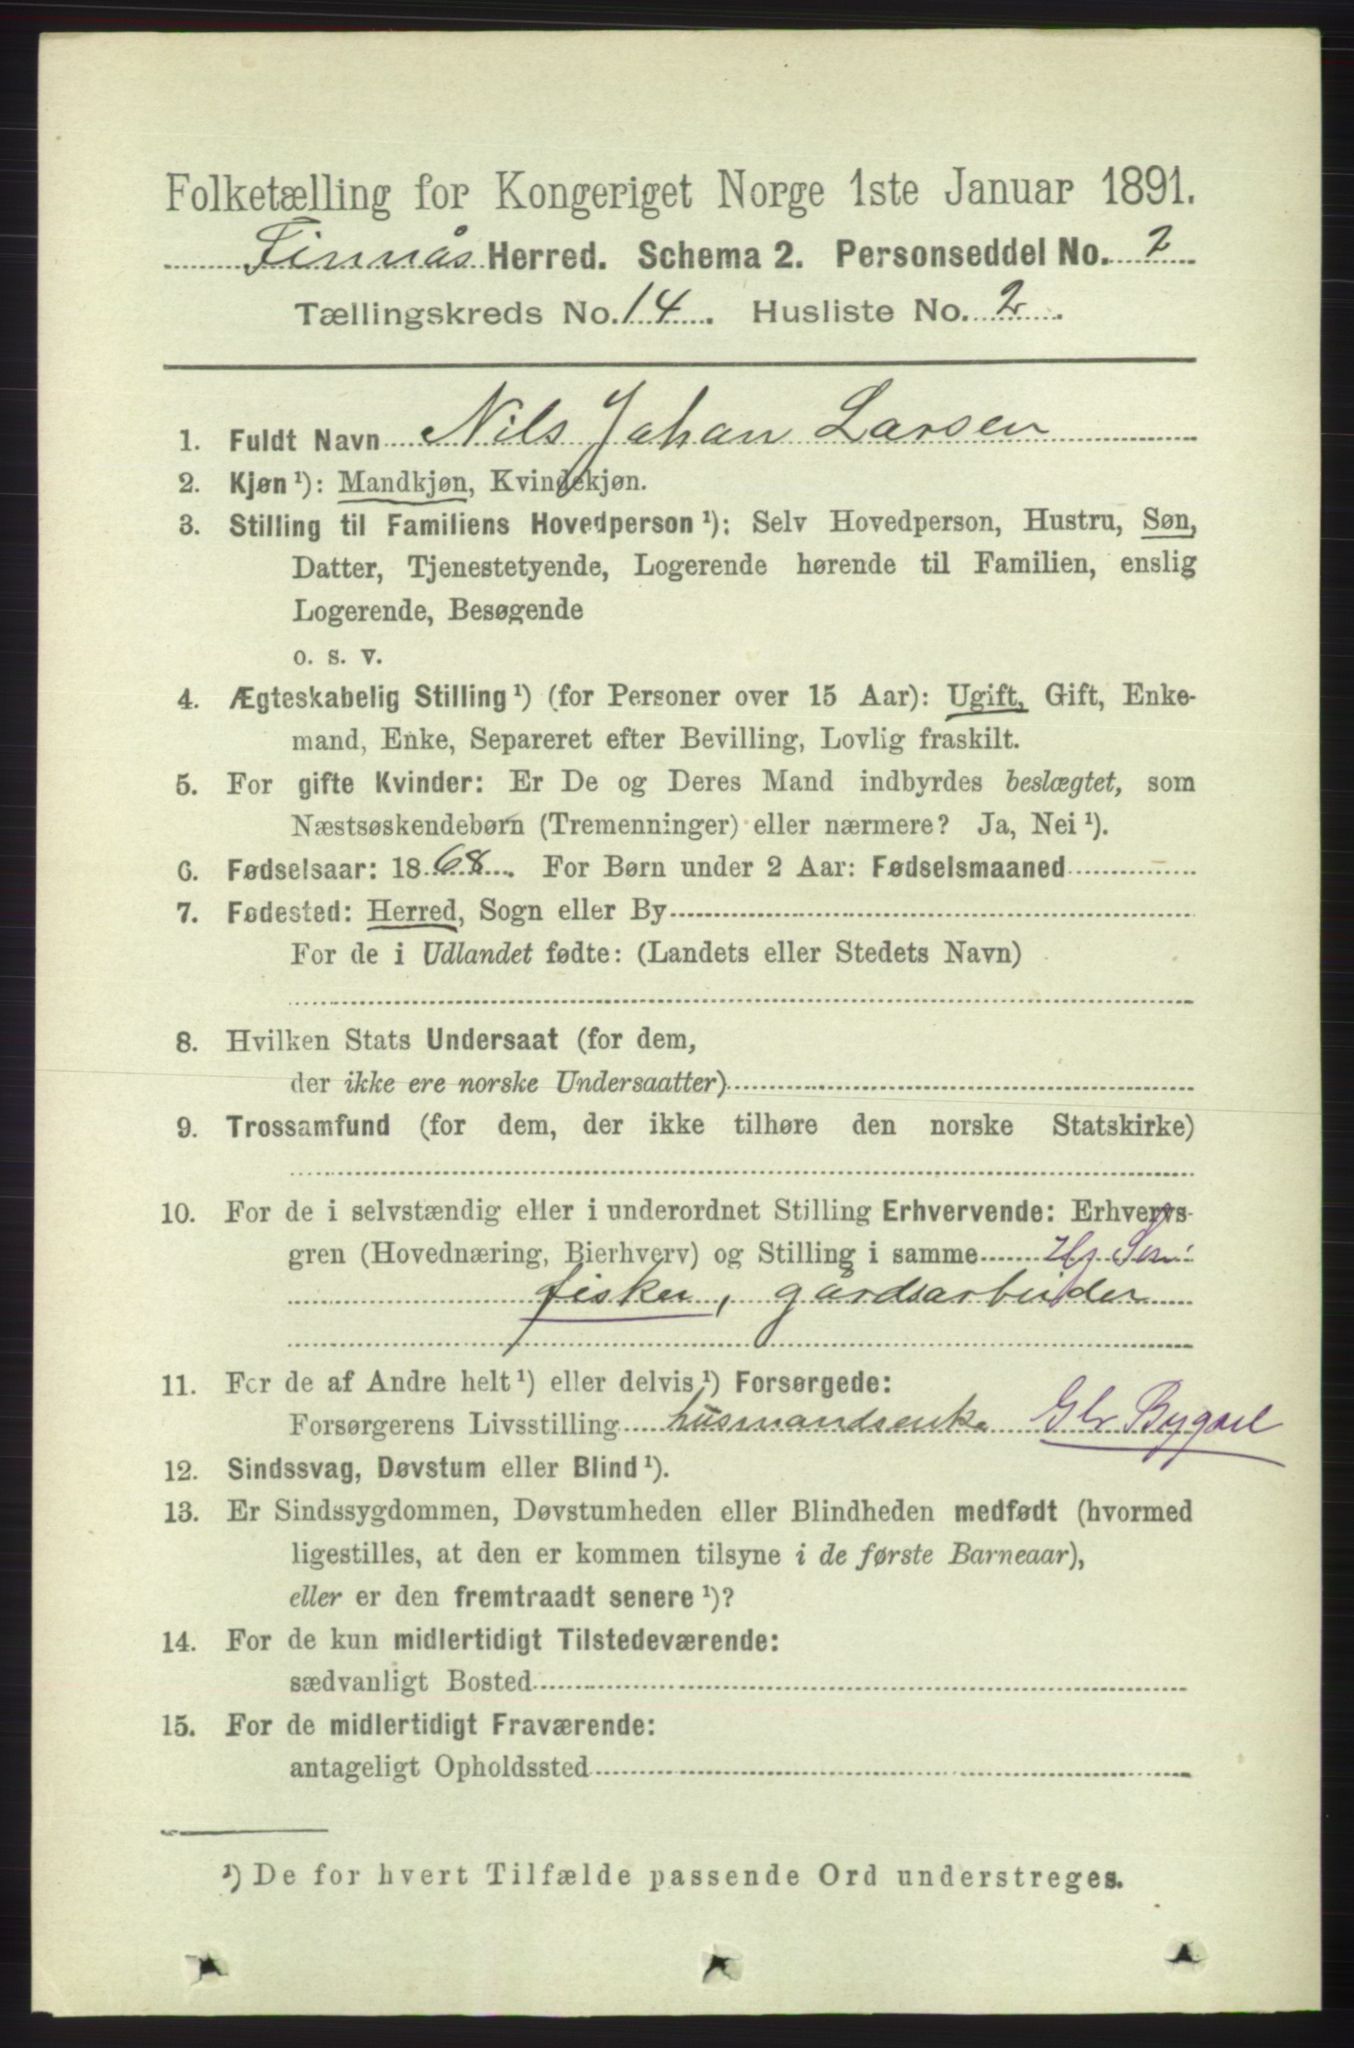 Folketælling for Kongeriget Norge 1ste Januar 1891.
Finnås Herred. Schema 2. Personseddel No. 2
Tællingskreds No. 14. Husliste No. 2.
1. Fuldt Navn Nils Johan Larsen
2. Kjøn¹): Mandkjøn, Kvindekjøn.
3. Stilling til Familiens Hovedperson¹): Selv Hovedperson, Hustru, Søn,
Datter, Tjenestetyende, Logerende hørende til Familien, enslig
Logerende, Besøgende
o. s. v.
4. Ægteskabelig Stilling¹) (for Personer over 15 Aar): Ugift, Gift, Enke-
mand, Enke, Separeret efter Bevilling, Lovlig fraskilt.
5. For gifte Kvinder: Er De og Deres Mand indbyrdes beslægtet, som
Næstsøskendebørn (Tremenninger) eller nærmere? Ja, Nei¹).
6. Fødselsaar: 1868. For Børn under 2 Aar: Fødselsmaaned
7. Fødested: Herred, Sogn eller By
For de i Udlandet fødte: (Landets eller Stedets Navn)
8. Hvilken Stats Undersaat (for dem,
der ikke ere norske Undersaatter)
9. Trossamfund (for dem, der ikke tilhøre den norske Statskirke)
10. For de i selvstændig eller i underordnet Stilling Erhvervende: Erhvervs-
gren (Hovednæring, Bierhverv) og Stilling i samme
fisker, gårdsarbeider
11. For de af Andre helt¹) eller delvis¹) Forsørgede:
Forsørgerens Livsstilling husmandsenke
12. Sindssvag, Døvstum eller Blind¹).
13. Er Sindssygdommen, Døvstumheden eller Blindheden medfødt (hvormed
ligestilles, at den er kommen tilsyne i de første Barneaar),
eller er den fremtraadt senere¹)?
14. For de kun midlertidigt Tilstedeværende:
sædvanligt Bosted
15. For de midlertidigt Fraværende:
antageligt Opholdssted
¹) De for hvert Tilfælde passende Ord understreges.